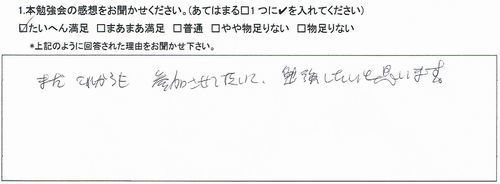 1.本勉強会の感想をお聞かせください。(あてはまる□1つに✔を入れてください)
☑たいへん満足 □まあまあ満足 □普通 □やや物足りない □物足りない
*上記のように回答された理由をお聞かせ下さい。
また これからも 参加させて頂いて、勉強したいと思います。